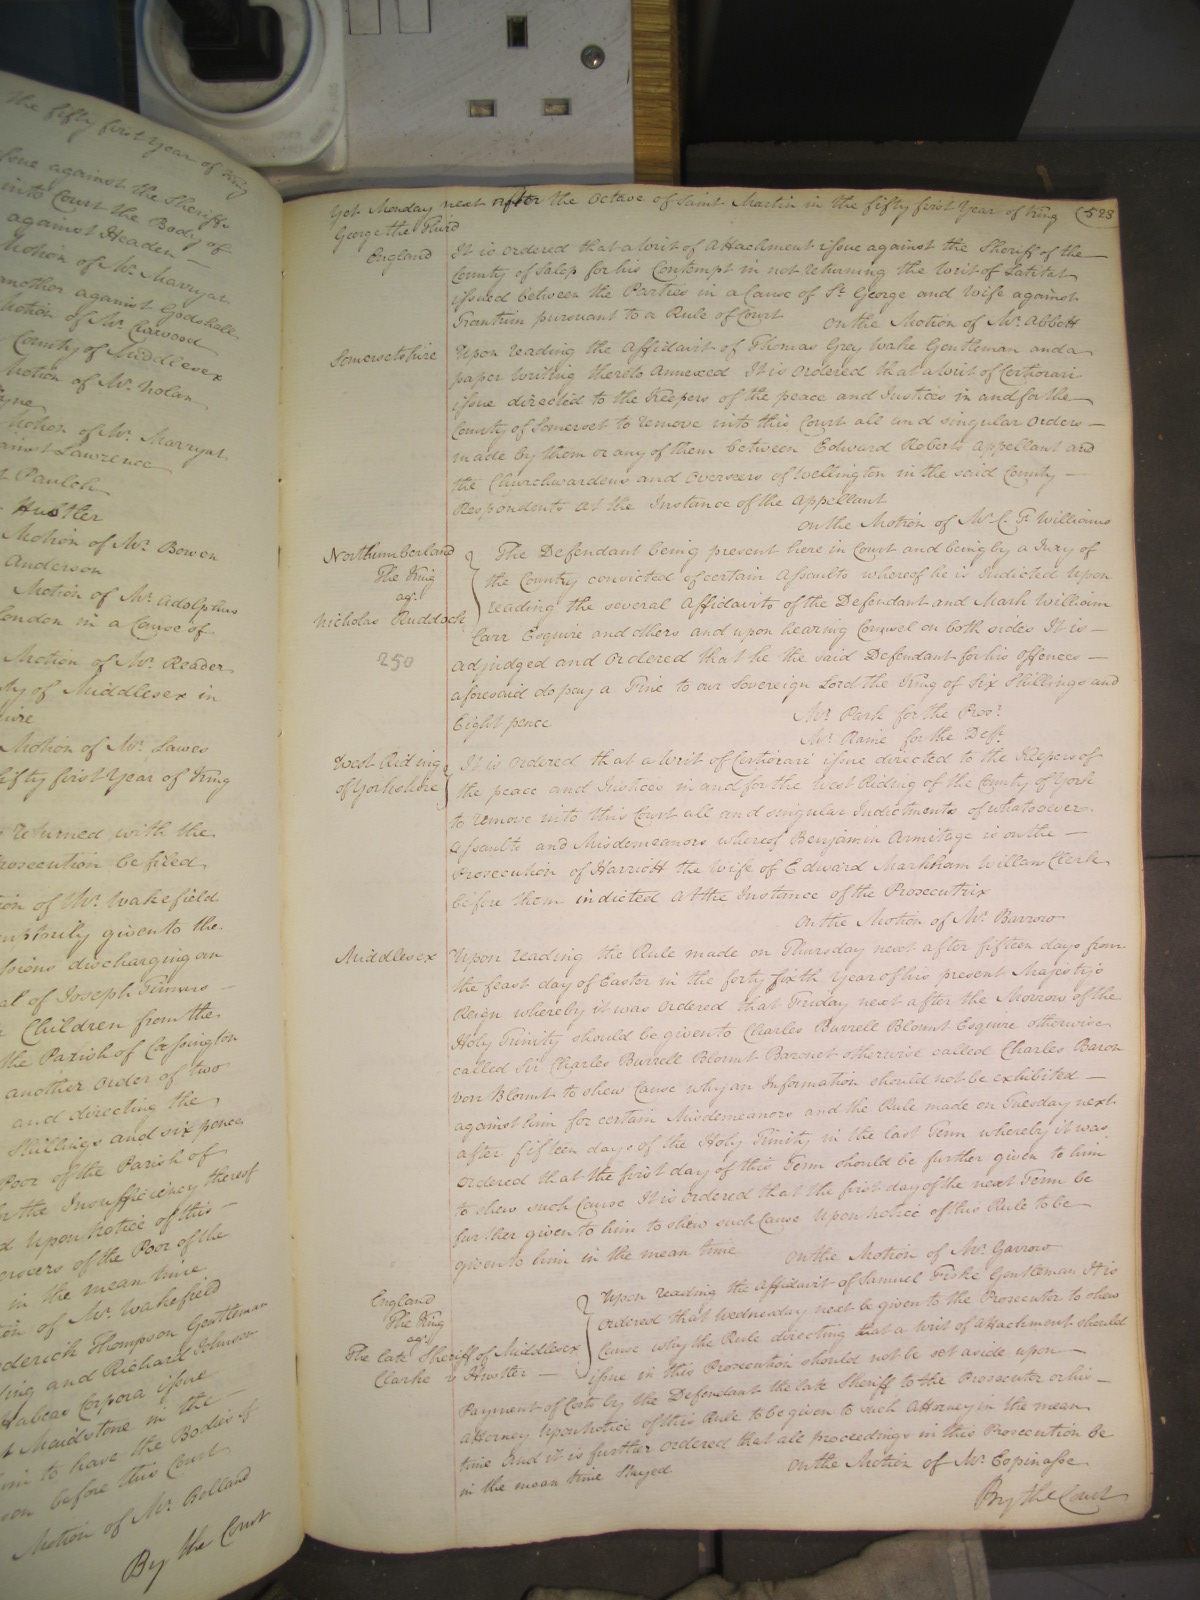 the fifty first year of King
issue against the Sheriffs
into Court the Body of
against Headen
Motion of Mr. Marryat
another against Godshall
Motion of Mr. Curwood
County of Middlesex
Motion of Mr. Nolan
Motion of Mr. Marryat
against Lawrence
Hustler
Motion of Mr. Bowen
Anderson
Motion of Mr. Adolphus
London in a Cause of
Motion of Mr. Reader
of Middlesex in
Motion of Mr. Lawes
fifty first Year of King
returned with the
Prosecution be filed
of Mr. Wakefield
given to the
discharging an
of Joseph Timms
Children from the
the Parish of Cossington
another Order of two
and directing the
Shillings and six pence
Poor of the Parish of
the Insufficiency thereof
Upon notice of this
Overseers of the Poor of the
in the mean time
of Mr. Wakefield
Thompson Gentleman
and Richard Johnson
Habeas Corpora issue
Maidstone in the
to have the Bodies of
before this Court
Motion of Mr. Bolland
By the Court
Yet Monday next after the Octave of Saint Martin in the fifty first Year of King (523
George the Third
England It is ordered that a Writ of Attachment issue against the Sheriff of the
County of Salop for his Contempt in not returning the Writ of Latitat
issued between the Parties in a Cause of St. George and Wife against
pursuant to a Rule of Court On the Motion of Mr. Abbott
Somersetshire Upon reading the Affidavit of Thomas Grey Wake Gentleman and a
paper Writing thereto Annexed It is Ordered that a Writ of Certiorari
issue directed to the Keepers of the peace and Justices in and for the
County of Somerset to remove into this Court all and singular Orders
made by them or any of them between Edward Roberts Appellant and
the Churchwardens and Overseers of Wellington in the said County
Respondents At the Instance of the Appellant
On the Motion of Mr. C. F. Williams
Northumberland The Defendant being present here in Court and being by a Jury of
The King the Country convicted of certain Assaults whereof he is Indicted Upon
agt. reading the several Affidavits of the Defendant and Mark William
Nicholas Ruddock Carr Esquire and others and upon hearing Counsel on both sides It is
250 adjudged and Ordered that he the said Defendant for his offences
aforesaid do pay a Fine to our Sovereign Lord the King of Six Shillings and
Eight pence Mr. Park for the Prosr.
Mr. Raine for the Deft.
West Riding It is Ordered that a Writ of Certiorari issue directed to the Keepers of
of Yorkshire the peace and Justices in and for the West Riding of the County of York
to remove into this Court all and singular Indictments of whatsoever
Assaults and Misdemeanors whereof Benjamin Armitage is on the
Prosecution of Harriott the Wife of Edward Markham Willan Clerk
before them indicted At the Instance of the Prosecutrix
On the Motion of Mr. Barrow
Middlesex Upon reading the Rule made on Thursday next after fifteen days from
the feast day of Easter in the forty sixth Year of his present Majesty's
Reign whereby it was Ordered that Friday next after the Morrow of the
Holy Trinity should be given to Charles Burrell Blount Esquire otherwise
called Sir Charles Burrell Blount Baronet otherwise called Charles Baron
von Blount to shew Cause why an Information should not be exhibited
against him for certain Misdemeanors and the Rule made on Tuesday next
after fifteen days of the Holy Trinity in the last Term whereby it was
Ordered that the first day of this Term should be further given to him
to shew such Cause It is Ordered that the first day of the next Term be
further given to him to shew such Cause Upon Notice of this Rule to be
given to him in the mean time On the Motion of Mr. Garrow
England Upon reading the Affidavit of Samuel Fiske Gentleman It is
The King ordered that Wednesday next be given to the Prosecutor to shew
agt. Cause why the Rule directing that a Writ of Attachment should
The late Sheriff of Middlesex issue in this Prosecution should not be set aside upon
Clarke v Hustler Payment of Costs by the Defendant the late Sheriff to the Prosecutor or his
Attorney Upon Notice of this Rule to be given to such Attorney in the mean
time And it is further Ordered that all proceedings in this Prosecution be
in the mean time Stayed On the Motion of Mr. Espinasse
By the Court